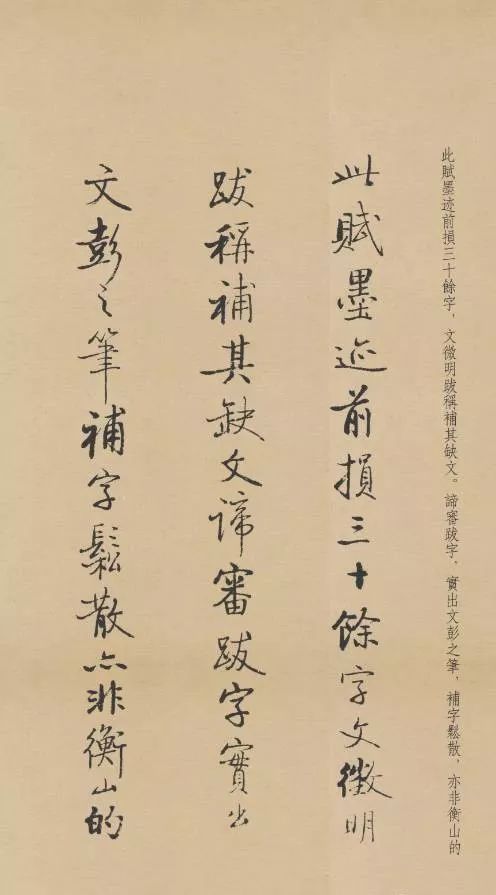 此賦墨迹前損三十餘字，文徵明跋稱補其缺文。諦審跋字，實出文彭之筆，補字鬆散，亦非衡山的
此賦墨迹前損三十餘字文徵明
跋稱補其缺文諦審跋字實出
文彭之筆補字鬆散亦非衡山的